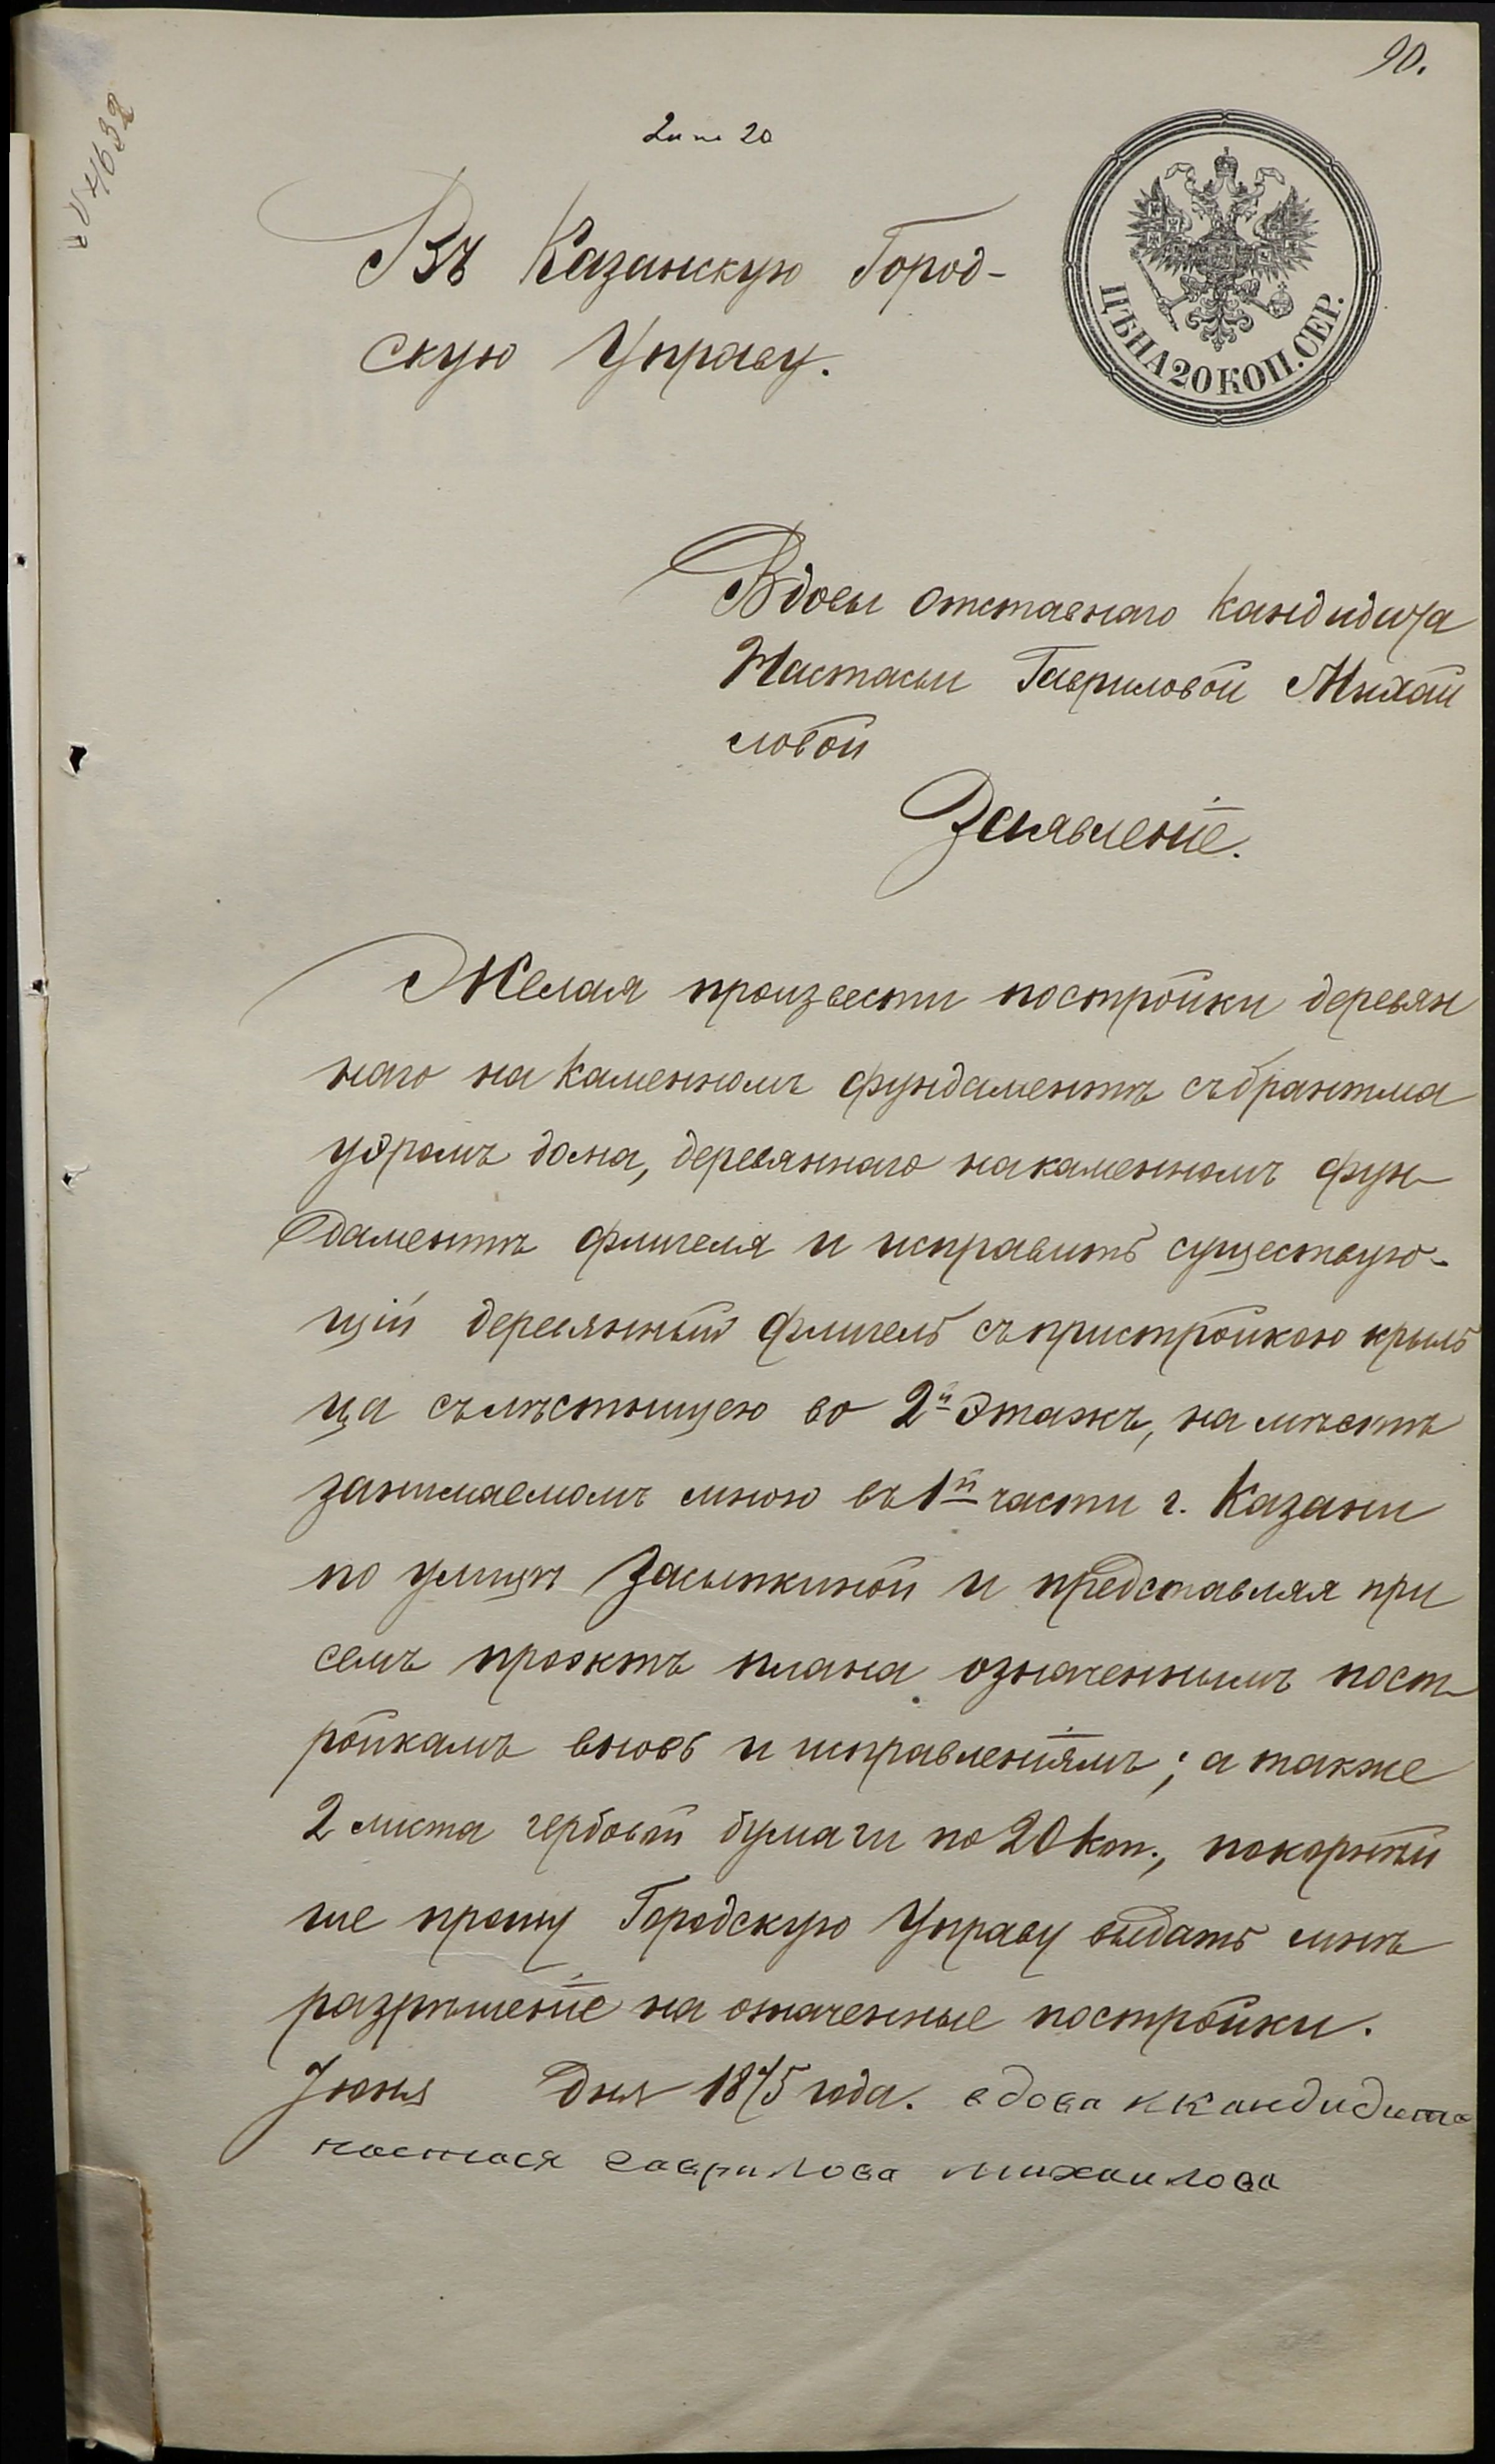 90.
№ 4632
20
Въ Казанскую Город-
скую Управу.
ЦѢНА 20 КОП. СЕР.
Вдовы отставнаго кандидата
Настасьи Гавриловой Михай
ловой
Заявленіе.
Желая произвести постройки деревян
наго на каменномъ фундаментѣ съ брантма
уэромъ дома, деревяннаго на каменномъ фун-
даментѣ флигеля и исправить существую-
щій деревянный флигель съ пристройкою крыль
ца съ лѣстницею во 2й этажъ, на мѣстѣ
занимаемомъ мною въ 1й части г. Казани
по улицѣ Засыпкиной и представляя при
семъ проэктъ плана означеннымъ пост-
ройкамъ вновь и исправленіямъ; а также
2 листа гербовой бумаги по 20 коп., покорнѣй
ше прошу Городскую Управу выдать мнѣ
разрѣшеніе на означенные постройки.
Іюня дня 1875 года. вдова ккандидата
настася гаврилова михаилова